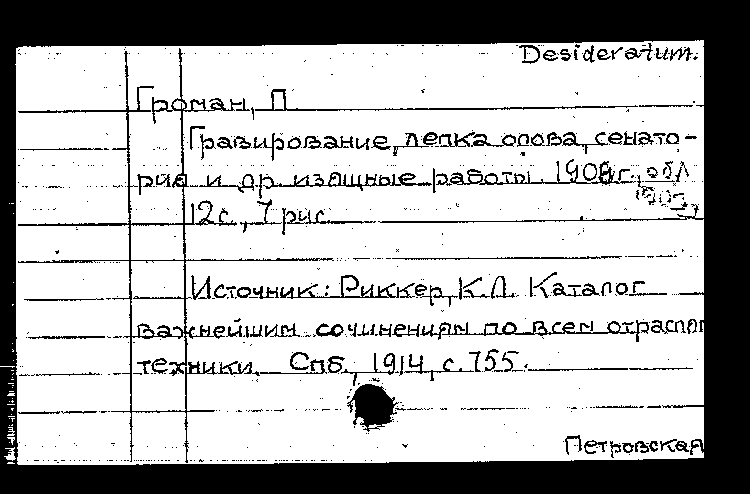 Desideratum.
Громан, П
Гравирование, лепка олова, сенато-
рия и др. изящные работы. 1908г., обл
1907,
12с., 7 рис
Источник: Риккер, К.Л. Каталог
важнейшим сочинениям по всем отрасля
техники. Спб., 1914, с. 755.
Петровская